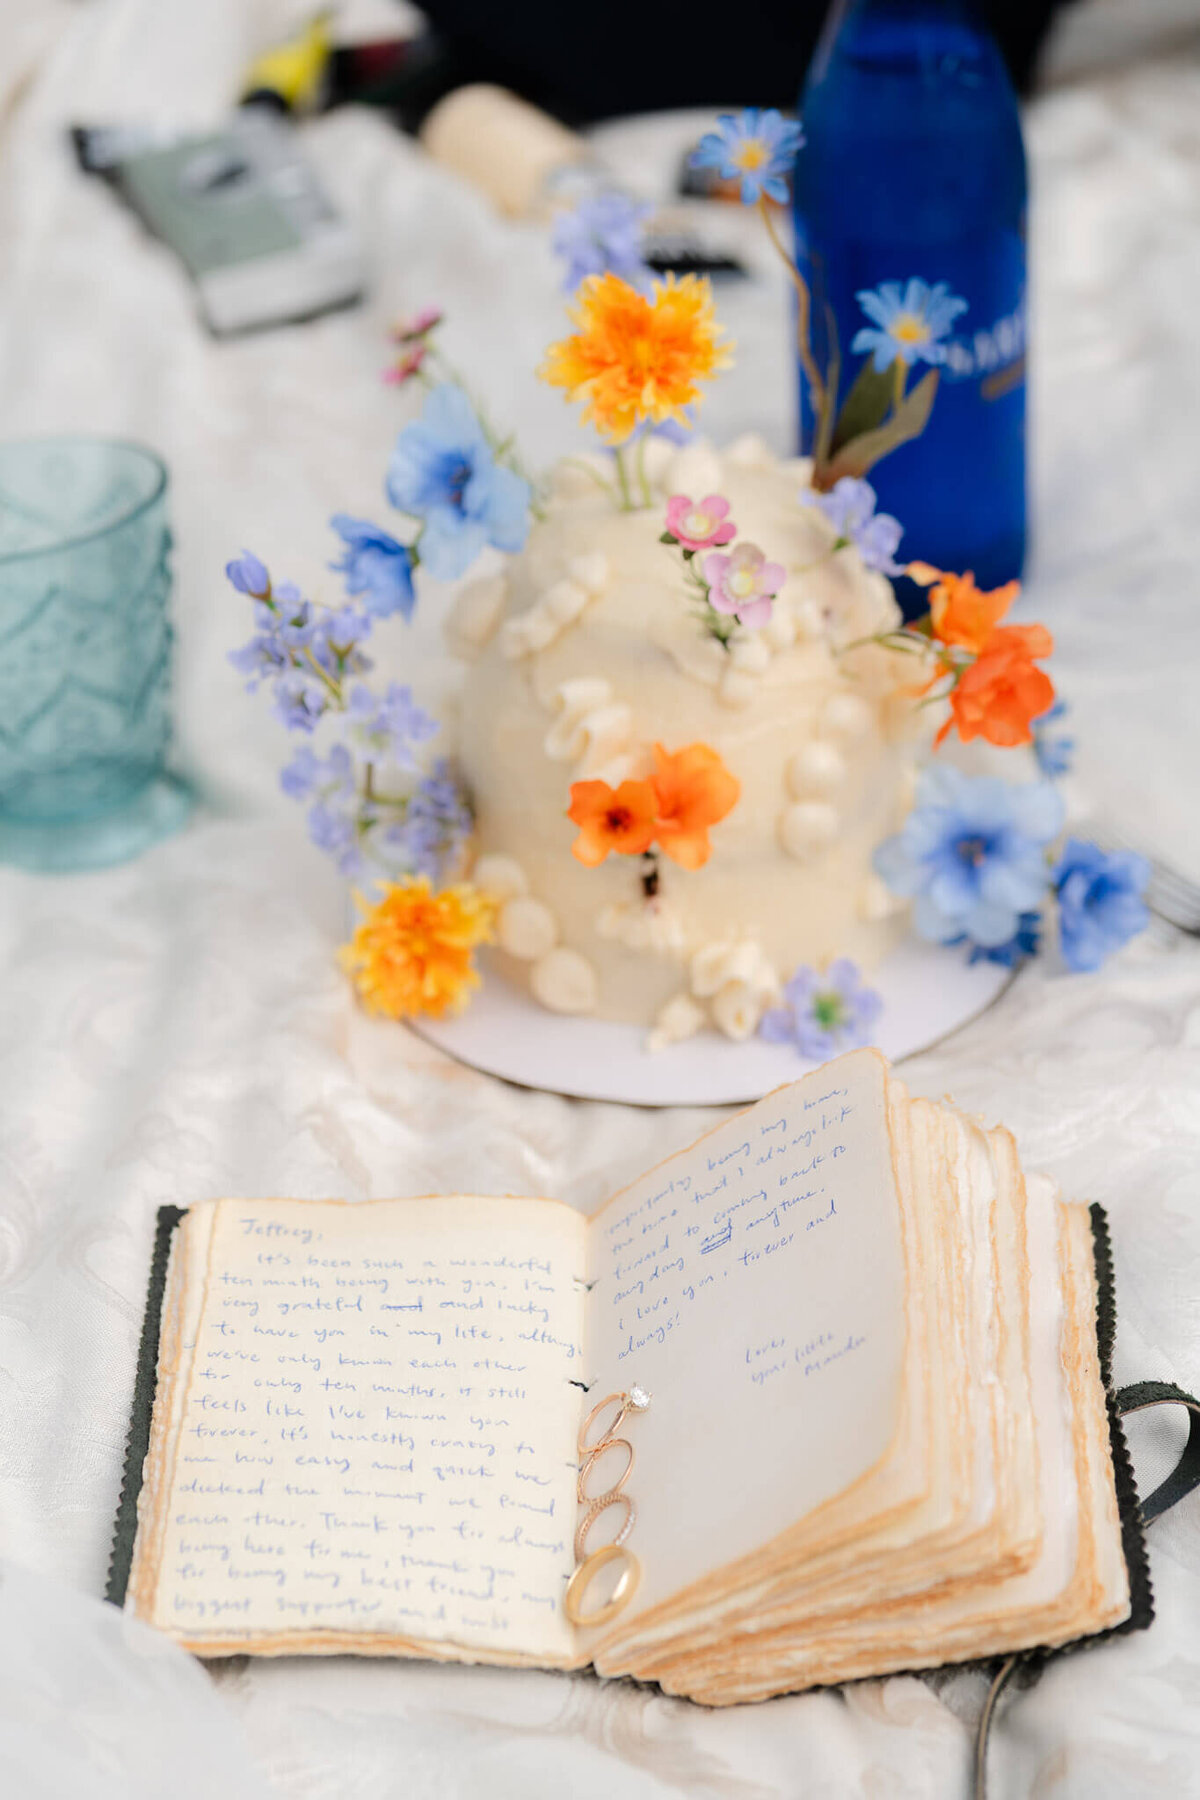 Jeffrey,
It's been such a wonderful
ten month being with you. I'm
very grateful and and lucky
to have you in my life, although
we've only known each other
for only ten months, it still
feels like I've known you
forever, it's honestly crazy to
me how easy and quick we
clicked the moment we found
each other. Thank you for always
being here for me, thank you
for being my best friend, my
biggest supporter and most
importantly being my home,
the home that I always look
forward to coming back to
anyday and anytime.
I love you, forever and
always!
Love,
your little